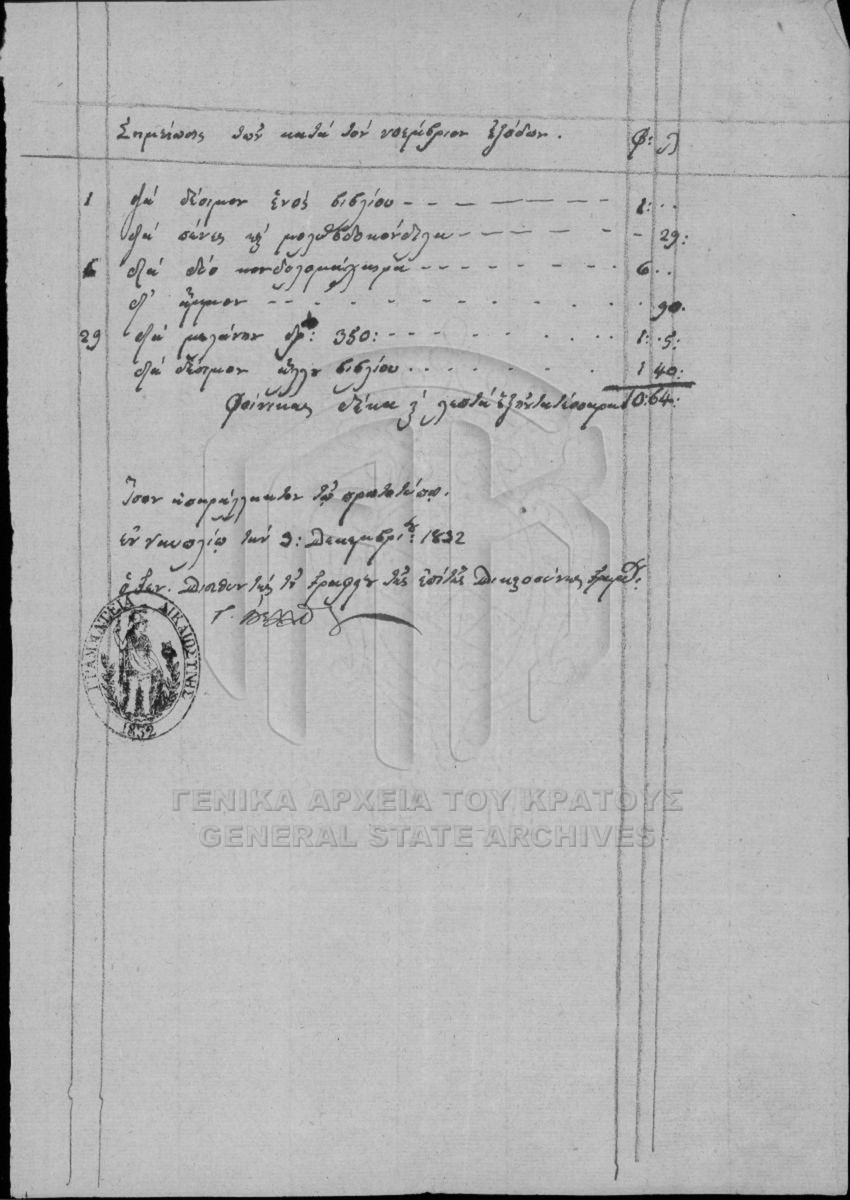 Σημείωσις τῶν κατά τόν νοέμβριον ἐξόδων. Φ: Λ
1 διά δέσιμον ἑνός βιβλίου 1: . .
διά πένες καὶ μολυβδοκόνδυλα 29:
6 διά δύο κονδυλομάχαιρα 6 . .
δι' ἄμμον 90.
29 διά μελάνην δρ: 350: 1: .5.
διά δέσιμον ἄλλου βιβλίου 1 40:
Φοίνικας δέκα καὶ λεπτά ἑξήντα τέσσαρα 10:64:
Ἴσον ἀπαράλλακτον τῷ πρωτοτύπῳ.
ἐν Ναυπλίῳ τήν 3: Δεκεμβρίου: 1832
ὁ Γεν. Διευθυντής τοῦ Γραφείου τῆς ἐπί τῆς Δικαιοσύνης Γραμμ:
ΓΡΑΜΜΑΤΕΙΑ ΔΙΚΑΙΟΣΥΝΗΣ
1832
ΓΕΝΙΚΑ ΑΡΧΕΙΑ ΤΟΥ ΚΡΑΤΟΥΣ
GENERAL STATE ARCHIVES